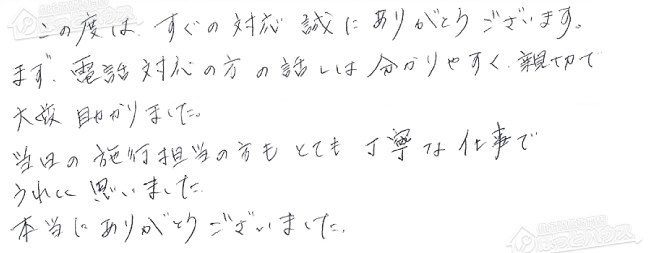 この度は、すぐの対応 誠にありがとうございます。
まず、電話対応の方の話しは分かりやすく、親切で
大変助かりました。
当日の施行担当の方もとても丁寧な仕事で
うれしく思いました。
本当にありがとうございました。